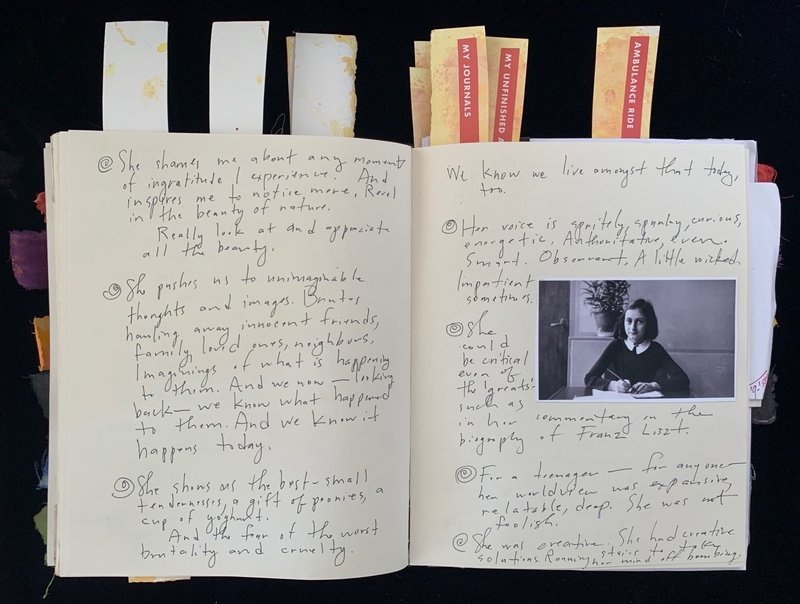 MY JOURNALS
MY UNFINISHED A
AMBULANCE RIDE
She shames me about any moment
of ingratitude I experience. And
inspires me to notice more, Revel
in the beauty of nature.
Really look at and appreciate
all the beauty.
She pushes us to unimaginable
thoughts and images. Brutes
hauling away innocent friends,
family, loved ones, neighbours,
Imaginings of what is happening
to them. And we now — looking
back — we know what happened
to them. And we know it
happens today.
She shows us the best – small
tendernesses, a gift of peonies, a
cup of yoghurt.
And the fear of the worst
brutality and cruelty.
We know we live amongst that today,
too.
Her voice is spritely, spunky, curious,
energetic. Authoritative, even.
Smart. Observant. A little wicked.
Impatient
sometimes.
She
could
be critical
even of
the 'greats'
such as
in her commentary on the
biography of Franz Liszt.
For a teenager — for anyone —
her worldview was expansive,
relatable, deep. She was not
foolish.
She was creative. She had creative
solutions. Running stairs to take
her mind off bombing.